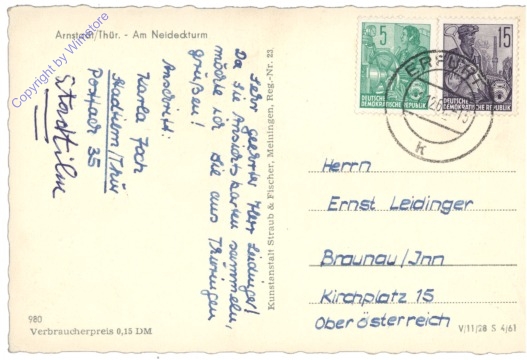 Arnstadt/Thür. - Am Neideckturm
Copyright by Winstore
Sehr geehrter Herr Leidinger!
Da Sie Ansichtskarten sammeln,
möchte ich Sie aus Thüringen
grüßen!
Anschrift:
Karla Joch
Stadtilm/Thür
Posthaus 35
Stadtilm
980
Verbraucherpreis 0,15 DM
Kunstanstalt Straub & Fischer, Meiningen, Reg.-Nr. 23.
5
DEUTSCHE
DEMOKRATISCHE REPUBLIK
15
DEUTSCHE
DEMOKRATISCHE REPUBLIK
ERFURT
k
Herrn
Ernst Leidinger
Braunau/Inn
Kirchplatz 15
Oberösterreich
V/11/28 S 4/61